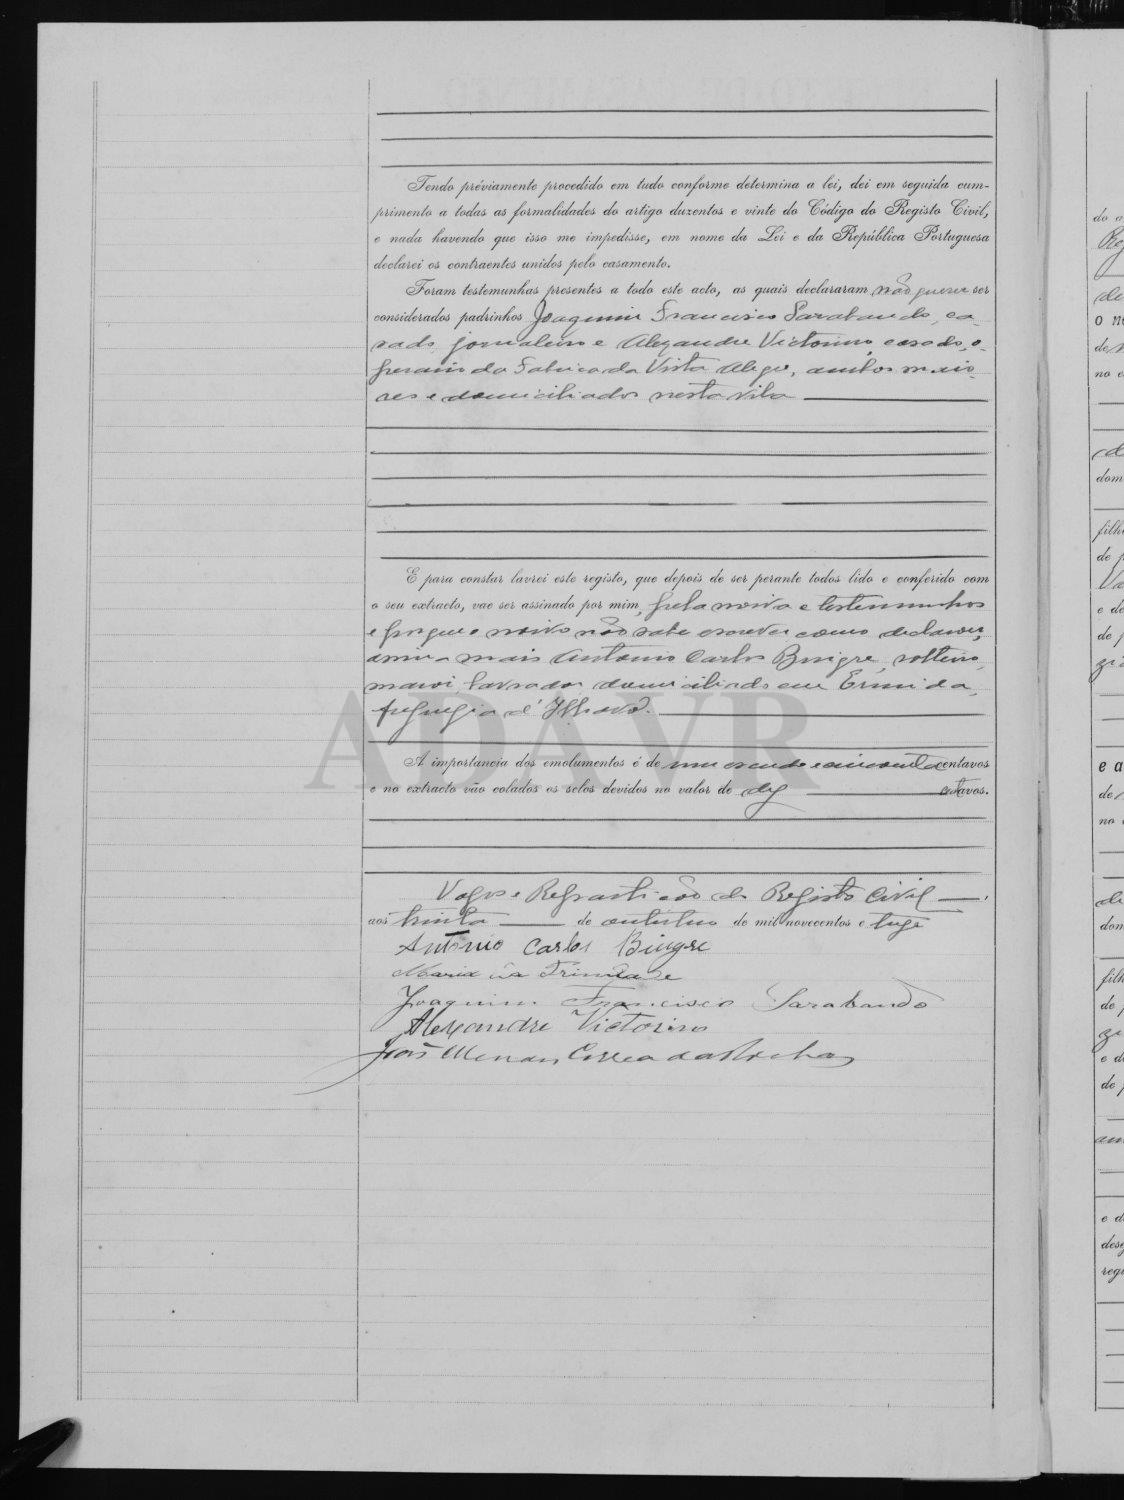 Tendo préviamente procedido em tudo conforme determina a lei, dei em seguida cum-
primento a todas as formalidades do artigo duzentos e vinte do Código do Registo Civil,
e nada havendo que isso me impedisse, em nome da Lei e da República Portuguesa
declarei os contraentes unidos pelo casamento.
Foram testemunhas presentes a todo este acto, as quais declararam não querer ser
considerados padrinhos Joaquim Francisco Sarabando, ca-
sado, jornaleiro e Alexandre Victorino, casado, o-
perario da Fabrica da Vista Alegre, ambos maio-
res e domiciliados nesta vila
E para constar lavrei este registo, que depois de ser perante todos lido e conferido com
o seu extracto, vae ser assinado por mim, pela noiva e testemunhas
e porque o noivo não sabe escrever como declarou,
assina mais Antonio Carlos Bingre, solteiro,
maior, lavrador, domiciliado em Ermida,
freguesia d'Ilhavo.
ADAVR
A importancia dos emolumentos é de um escudo e cincoenta centavos
e no extracto vão colados os selos devidos no valor de dez centavos.
Vagos e Repartição do Registo Civil
aos trinta de outubro de mil novecentos e treze
Antonio Carlos Bingre
Maria da Trindade
Joaquim Francisco Sarabando
Alexandre Victorino
João Mendes Correa da Rocha
do
o n
de
no
dom
filh
de p
e d
de p
e a
de
no
dom
filh
de p
e d
de p
e d
des
reg